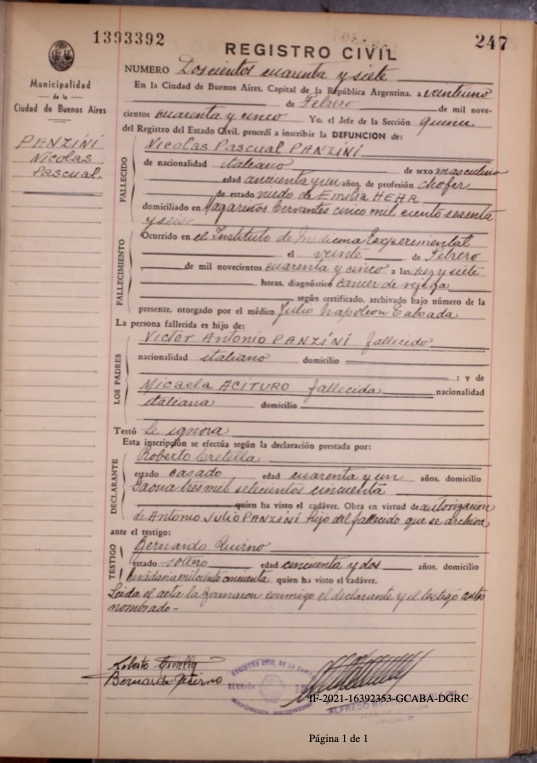 1393392
247
REGISTRO CIVIL
Municipalidad
de la
Ciudad de Buenos Aires
PANZINI
Nicolas
Pascual.
NUMERO Doscientos cuarenta y siete
En la Ciudad de Buenos Aires, Capital de la República Argentina, a veintiuno
de Febrero de mil nove-
cientos cuarenta y cinco Yo, el Jefe de la Sección quince
del Registro del Estado Civil, procedí a inscribir la DEFUNCION de:
FALLECIDO
Nicolas Pascual PANZINI
de nacionalidad italiano de sexo masculino
edad cincuenta y un años, de profesión chofer
de estado viudo de Emilia HEHR
domiciliado en Cervantes cinco mil ciento sesenta
y seis
FALLECIMIENTO
Ocurrido en el Instituto de Medicina Experimental
el veinte de Febrero
de mil novecientos cuarenta y cinco a las diez y siete
horas, diagnóstico cancer de vejiga
según certificado, archivado bajo número de la
presente, otorgado por el médico Julio Napoleon Calzada
La persona fallecida es hijo de:
LOS PADRES
Victor Antonio PANZINI fallecido
nacionalidad italiano domicilio
: y de
Micaela ACITURO fallecida nacionalidad
italiana domicilio
Testó Se ignora
Esta inscripción se efectúa según la declaración prestada por:
DECLARANTE
Roberto Cretella
estado casado edad cuarenta y un años, domicilio
Gaona tres mil setecientos cincuenta
quien ha visto el cadáver. Obra en virtud de autorizacion
de Antonio Julio PANZINI hijo del fallecido que se archiva
ante el testigo:
TESTIGO
Bernardo Quirno
estado soltero edad cincuenta y dos años, domicilio
Rivadavia mil ciento cincuenta quien ha visto el cadáver.
Leida el acta la firmaron conmigo el declarante y el testigo antes
nombrado-
Bernardo Quirno
REGISTRO CIVIL DE LA CAPITAL
SECCION
REPUBLICA ARGENTINA
IF-2021-16392353-GCABA-DGRC
ALFREDO
Página 1 de 1